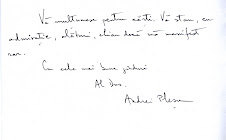 Vă mulțumesc pentru cărți. Vă stau, cu
admirație, alături, chiar dacă mă manifest
rar.
Cu cele mai bune gânduri
Al Dvs.
Andrei Pleșu